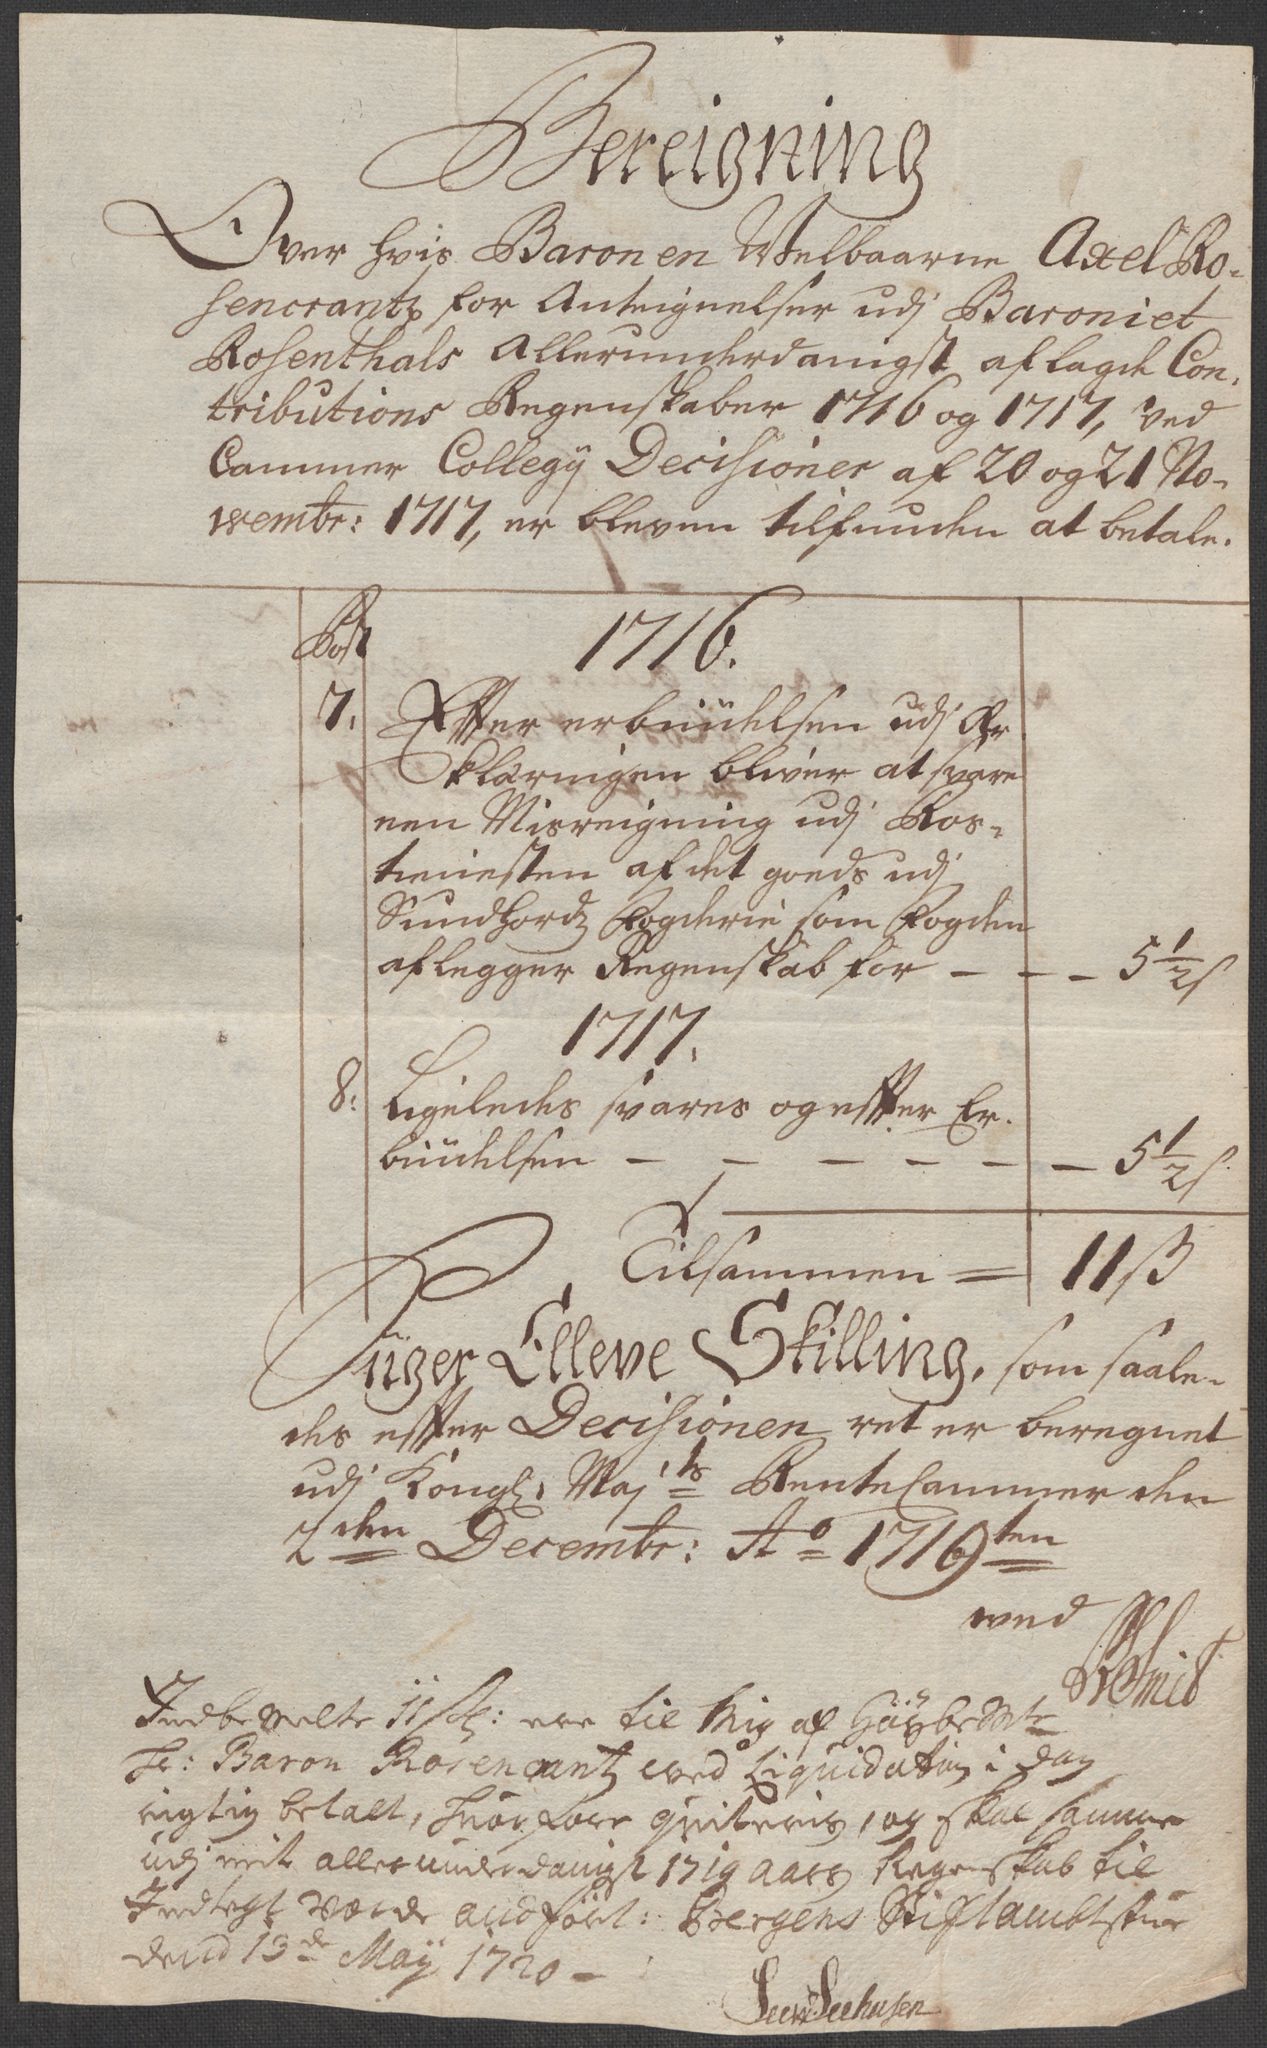 Bereigning
Over hvis Baronen Welbaarne Axel Ro-
sencrantz for Anteignelser udj Baroniet
Rosenthals Allerunderdanigst aflagde Con-
tributions Regenskaber 1716 og 1717, ved
Cammer Collegij Decisioner af 20 og 21 No-
vembr: 1717, er bleven tilfunden at betale.
Post 1716.
7. Effter erbüdelsen udj Er
klæringen bliver at svare
een Misreigning udj Ros-
tienesten af det goeds udj
Sundhordz Fogderie som Fogden
aflegger Regenskab for - - - 5 1/2 s
1717.
8. Ligeledes svares og effter Er-
büdelsen - - - - - - 5 1/2 s
Tilsammen = 11 ß
Siiger Elleve Skilling, som saale-
des effter Decisionen ret er beregnet
udj Kongl: Maj:ts RenteCammer den
2den Decembr: Ao 1719ten
ved
Smid
Indbemelte 11 sk: ere til Mig af Höybemte
Hr: Baron Rosencrantz ved Liquidation i Dag
rigtig betalt, hvorfore qviteris, og skal samme
udj mit allerunderdanigst 1719 aars Regenskab til
Indtegt vorde andført: Bergens Stiftambtstue
dend 13de Maij 1720 -
Seehusen